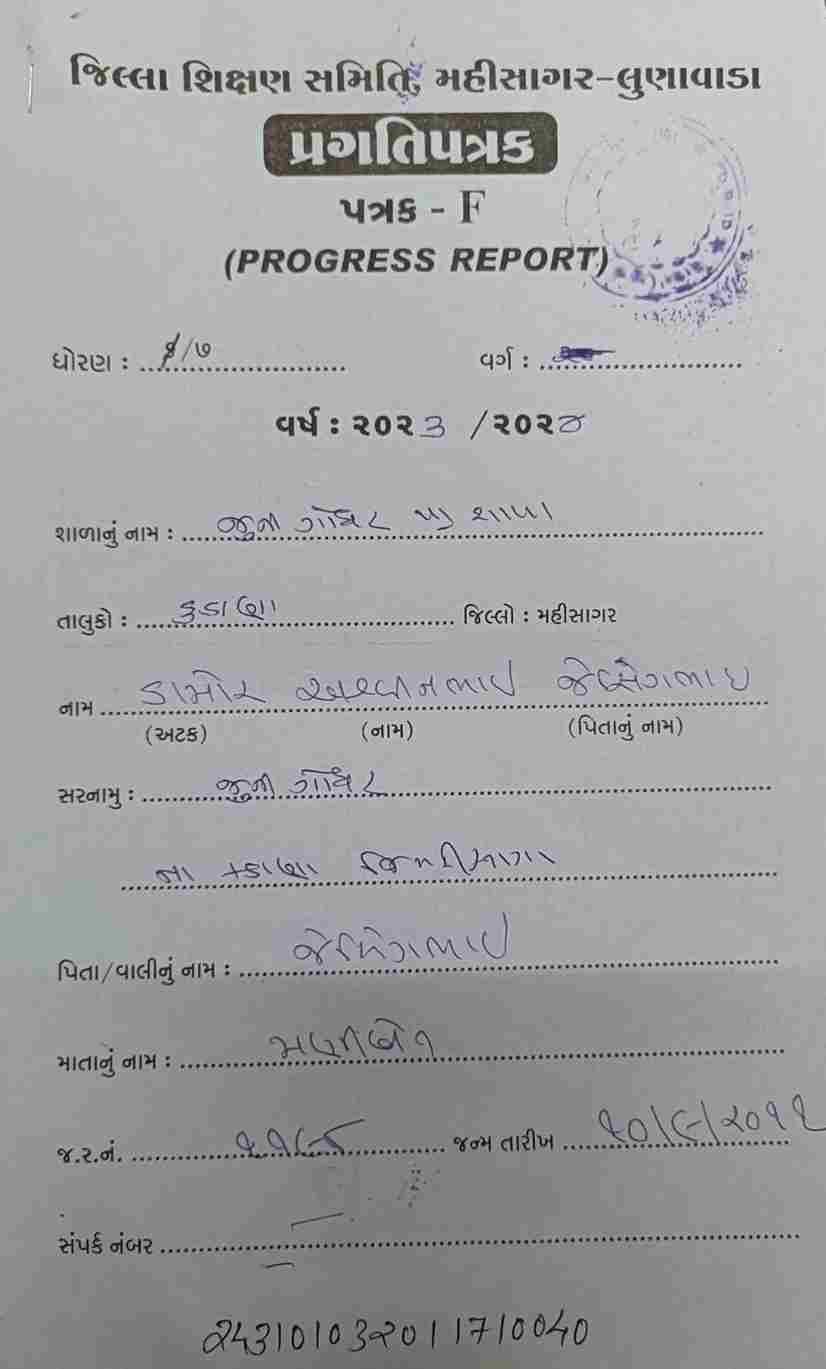 જિલ્લા શિક્ષણ સમિતિ, મહીસાગર-લુણાવાડા
પ્રગતિપત્રક
પત્રક - F
(PROGRESS REPORT)
ધોરણ : /૭ વર્ગ :
વર્ષ : ૨૦૨૩ /૨૦૨૪
શાળાનું નામ : જુના ગોધર પ્રા શાળા
તાલુકો : કડાણા જિલ્લો : મહીસાગર
નામ ડામોર જેસીંગભાઇ
(અટક) (નામ) (પિતાનું નામ)
સરનામુ : જુના ગોધર
પિતા/વાલીનું નામ : જેસીંગભાઇ
માતાનું નામ : મણીબેન
જ.ર.નં. જન્મ તારીખ ૧૦/૯/૨૦૧૧
સંપર્ક નંબર
243101032011710040